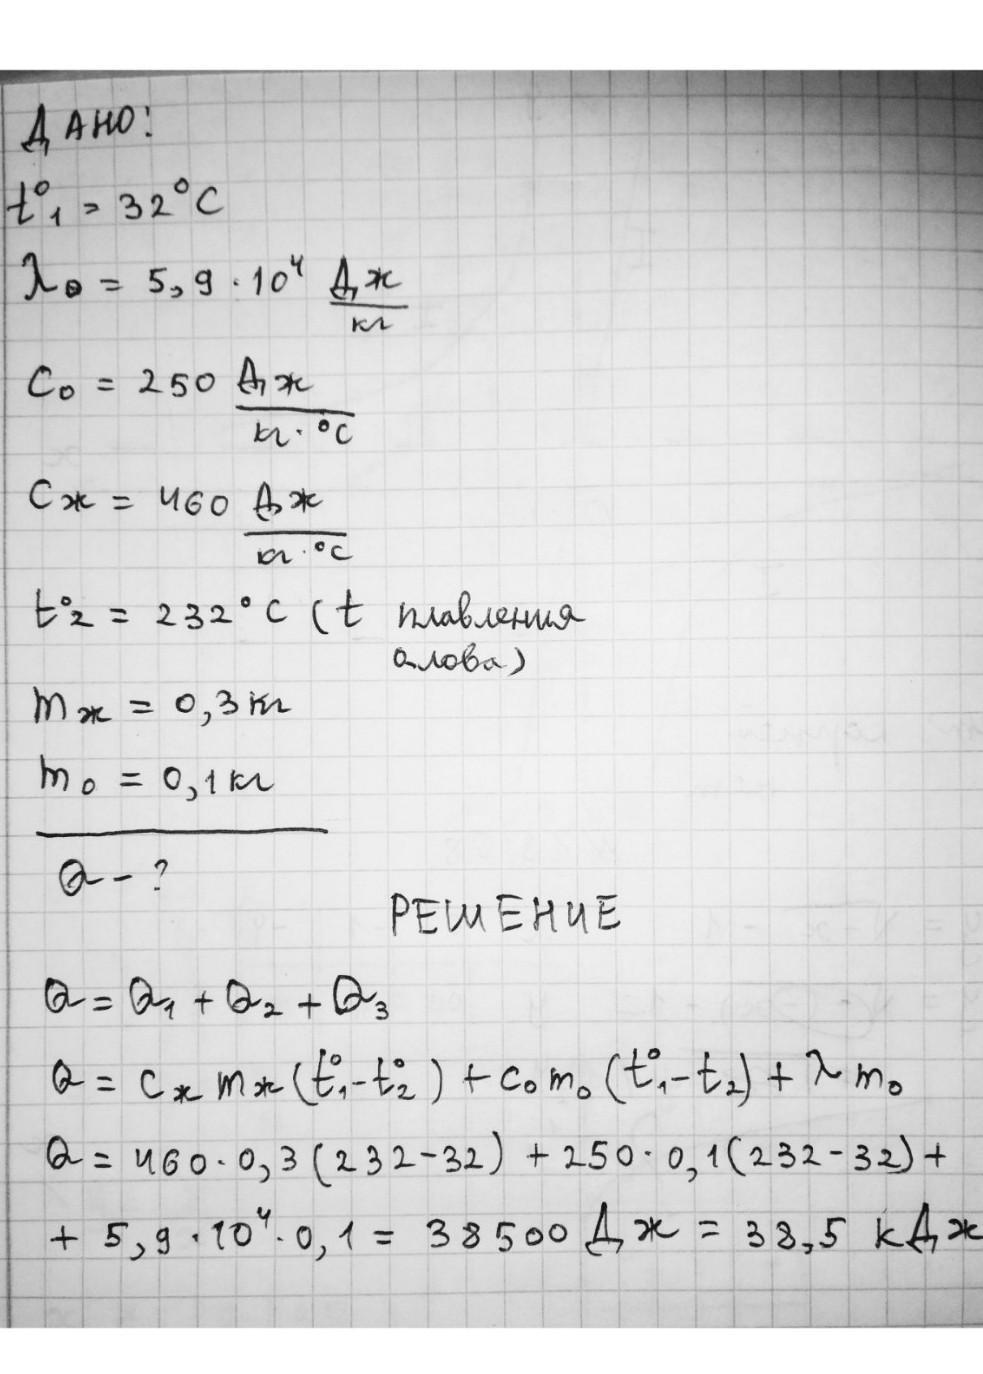 ДАНО:
t°₁ = 32°C
λ₀ = 5,9 · 10⁴ Дж
кг
C₀ = 250 Дж
кг · °C
Cж = 460 Дж
кг · °C
t°₂ = 232°C (t плавления
олова)
mж = 0,3 кг
m₀ = 0,1 кг
Q - ?
РЕШЕНИЕ
Q = Q₁ + Q₂ + Q₃
Q = Cж mж (t°₁ - t°₂) + C₀ m₀ (t°₁ - t₂) + λ m₀
Q = 460 · 0,3 (232 - 32) + 250 · 0,1 (232 - 32) +
+ 5,9 · 10⁴ · 0,1 = 38500 Дж = 38,5 кДж